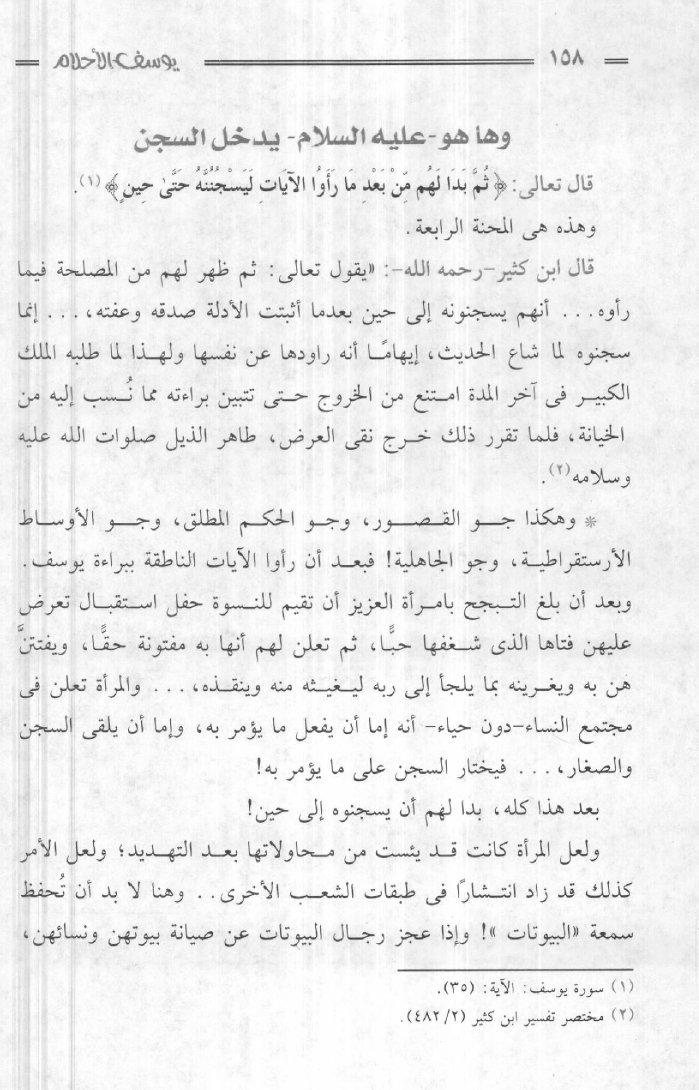 ١٥٨ يوسف الأحلام
وها هو - عليه السلام - يدخل السجن
قال تعالى: ﴿ ثُمَّ بَدَا لَهُم مِّنْ بَعْدِ مَا رَأَوُا الآيَاتِ لَيَسْجُنُنَّهُ حَتَّىٰ حِينٍ ﴾ (١).
وهذه هى المحنة الرابعة.
قال ابن كثير -رحمه الله-: «يقول تعالى: ثم ظهر لهم من المصلحة فيما
رأوه... أنهم يسجنونه إلى حين بعدما أثبتت الأدلة صدقه وعفته، ... إنما
سجنوه لما شاع الحديث، إيهامًا أنه راودها عن نفسها ولهذا لما طلبه الملك
الكبير فى آخر المدة امتنع من الخروج حتى تتبين براءته مما نُسب إليه من
الخيانة، فلما تقرر ذلك خرج نقى العرض، طاهر الذيل صلوات الله عليه
وسلامه(٢).
* وهكذا جو القصور، وجو الحكم المطلق، وجو الأوساط
الأرستقراطية، وجو الجاهلية! فبعد أن رأوا الآيات الناطقة ببراءة يوسف.
وبعد أن بلغ التبجح بامرأة العزيز أن تقيم للنسوة حفل استقبال تعرض
عليهن فتاها الذى شغفها حبًّا، ثم تعلن لهم أنها به مفتونة حقًّا، ويفتتنَّ
هن به ويغرينه بما يلجأ إلى ربه ليغيثه منه وينقذه، ... والمرأة تعلن فى
مجتمع النساء -دون حياء- أنه إما أن يفعل ما يؤمر به، وإما أن يلقى السجن
والصغار، ... فيختار السجن على ما يؤمر به!
بعد هذا كله، بدا لهم أن يسجنوه إلى حين!
ولعل المرأة كانت قد يئست من محاولاتها بعد التهديد؛ ولعل الأمر
كذلك قد زاد انتشارًا فى طبقات الشعب الأخرى.. وهنا لا بد أن تُحفظ
سمعة «البيوتات »! وإذا عجز رجال البيوتات عن صيانة بيوتهن ونسائهن،
(١) سورة يوسف: الآية: (٣٥).
(٢) مختصر تفسير ابن كثير (٢/ ٤٨٢).